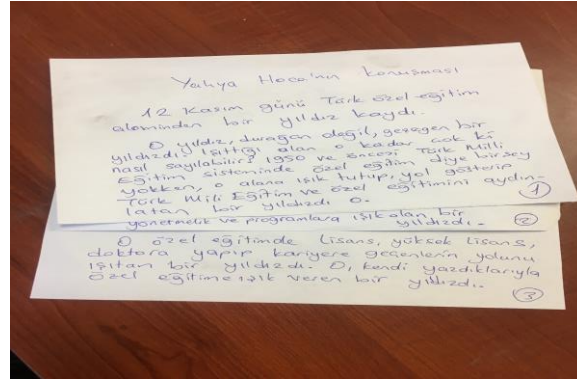 Yahya Hoca'nın konuşması
12 Kasım günü Türk özel eğitim
aleminden bir yıldız kaydı.
O yıldız, durağan değil, gezegen bir
yıldızdı. Işıttığı alan o kadar çok ki
nasıl sayılabilir? 1950 ve öncesi Türk Milli
Eğitim sisteminde özel eğitim diye birşey
yokken, o alana ışık tutup, yol gösterip
Türk Mili Eğitim ve özel eğitimini aydın-
latan bir yıldızdı o.
1
yönetmelik ve programlara ışık olan bir
yıldızdı.
2
O özel eğitimde Lisans, yüksek lisans,
doktora yapıp kariyere geçenlerin yolunu
ışıtan bir yıldızdı. O, kendi yazdıklarıyla
özel eğitime ışık veren bir yıldızdı.
3